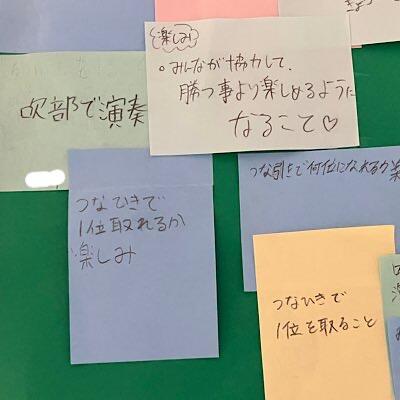 楽しみ
。みんなが協力して、
勝つ事より楽しめるように
なること♡
吹部で演奏
つなひきで
1位取れるか
楽しみ
つな引きで何位になれるか楽
つなひきで
1位を取ること